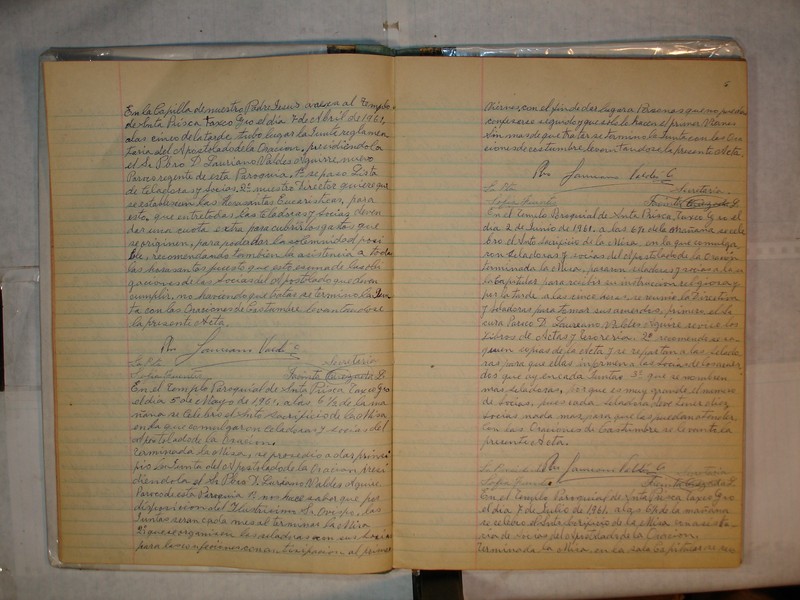 En la Capilla de nuestro Padre Jesus anexa al Templo
de Santa Prisca Taxco Gro el dia 7 de Abril de 1961,
a las cinco de la tarde tubo lugar la Junta reglamen
taria del Apostolado de la Oracion, presidiendola
el Sr. Pbro. D. Lauriano Valdes Aguirre nuevo
Parroco regente de esta Parroquia. 1º se paso Lista
de Celadoras y Socias. 2º nuestro Director quiere que
se establescan las Horas Santas Eucaristicas, para
esto, que entre todas las Celadoras y Socias deven
dar una cuota extra para cubrir los gastos que
se originen, para poder dar la solemnidad posi
ble, recomendando tambien la asistencia a todas
las horas santas puesto que esto es una de las obli
gaciones de las Socias del Apostolado que deven
cumplir, no haviendo que tratar se termino la Jun
ta con las Oraciones de Costumbre levantandose
la presente Acta.
La Pta Secretaria
En el templo Parroquial de Santa Prisca Taxco Gro
el dia 5 de Mayo de 1961. a las 6½ de la ma
ñana se celebro el Santo Sacrificio de la Misa
en la que comulgaron Celadoras y Socias del
Apostolado de la Oracion.
Terminada la Misa, se prosedio a dar princi
pio la Junta del Apostolado de la Oracion presi
diendola el Sr. Pbro. D. Lauriano Valdes Aguirre
Parroco de esta Parroquia 1º nos hace saber que por
disposicion del Ilustrisimo Sr. Obispo, las
Juntas seran cada mes al terminar la Misa
2º que se organisen las celadoras con sus Socias
para las confesiones con anticipacion al primer
6
Viernes, con el fin de dar lugar a Buenas que no puedan
confesarse segun do que solo lo hacen el primer Viernes
sin mas de que tratar se termino la Junta con las Ora
siones de costumbre, levantandose la presente Acta.
La Pta Secretaria
En el Templo Parroquial de Santa Prisca, Taxco Gro el
dia 2 de Junio de 1961. a las 6½ de la mañana se cele
bro el Santo Sacrificio de la Misa, en la que comulga
ron Celadoras y socias del Apostolado de la Oracion
terminada la Misa, pasaron celadoras y socias a la sa
la Capitular para recibir su instruccion religiosa y
por la tarde a las cinco de se reunio la Directiva
y celadoras para tomar sus acuerdos, primero el Sr
cura Parroco D. Laureano Valdes Aguirre reviso los
Libros de Actas y tesoreria. 2º recomienda se sa
quen copias de la Acta y se repartan a las Celado
ras para que ellas informen a las socias de lo acorda
do que ay en cada Junta 3º que se nombren
mas Celadoras, porque es muy grande el numero
de Socias, pues cada celadora debe tener diez
socias nada mas, para que las puedan atender
Con las Oraciones de Costumbre se levanta la
presente Acta.
Secretaria
En el templo Parroquial de Santa Prisca Taxco Gro
el dia 7 de Julio de 1961. a las 6½ de la mañana
se celebro el Santo Sacrificio de la Misa
de socias del Apostolado de la Oracion.
Terminada la Misa, en la sala Capitular se reu